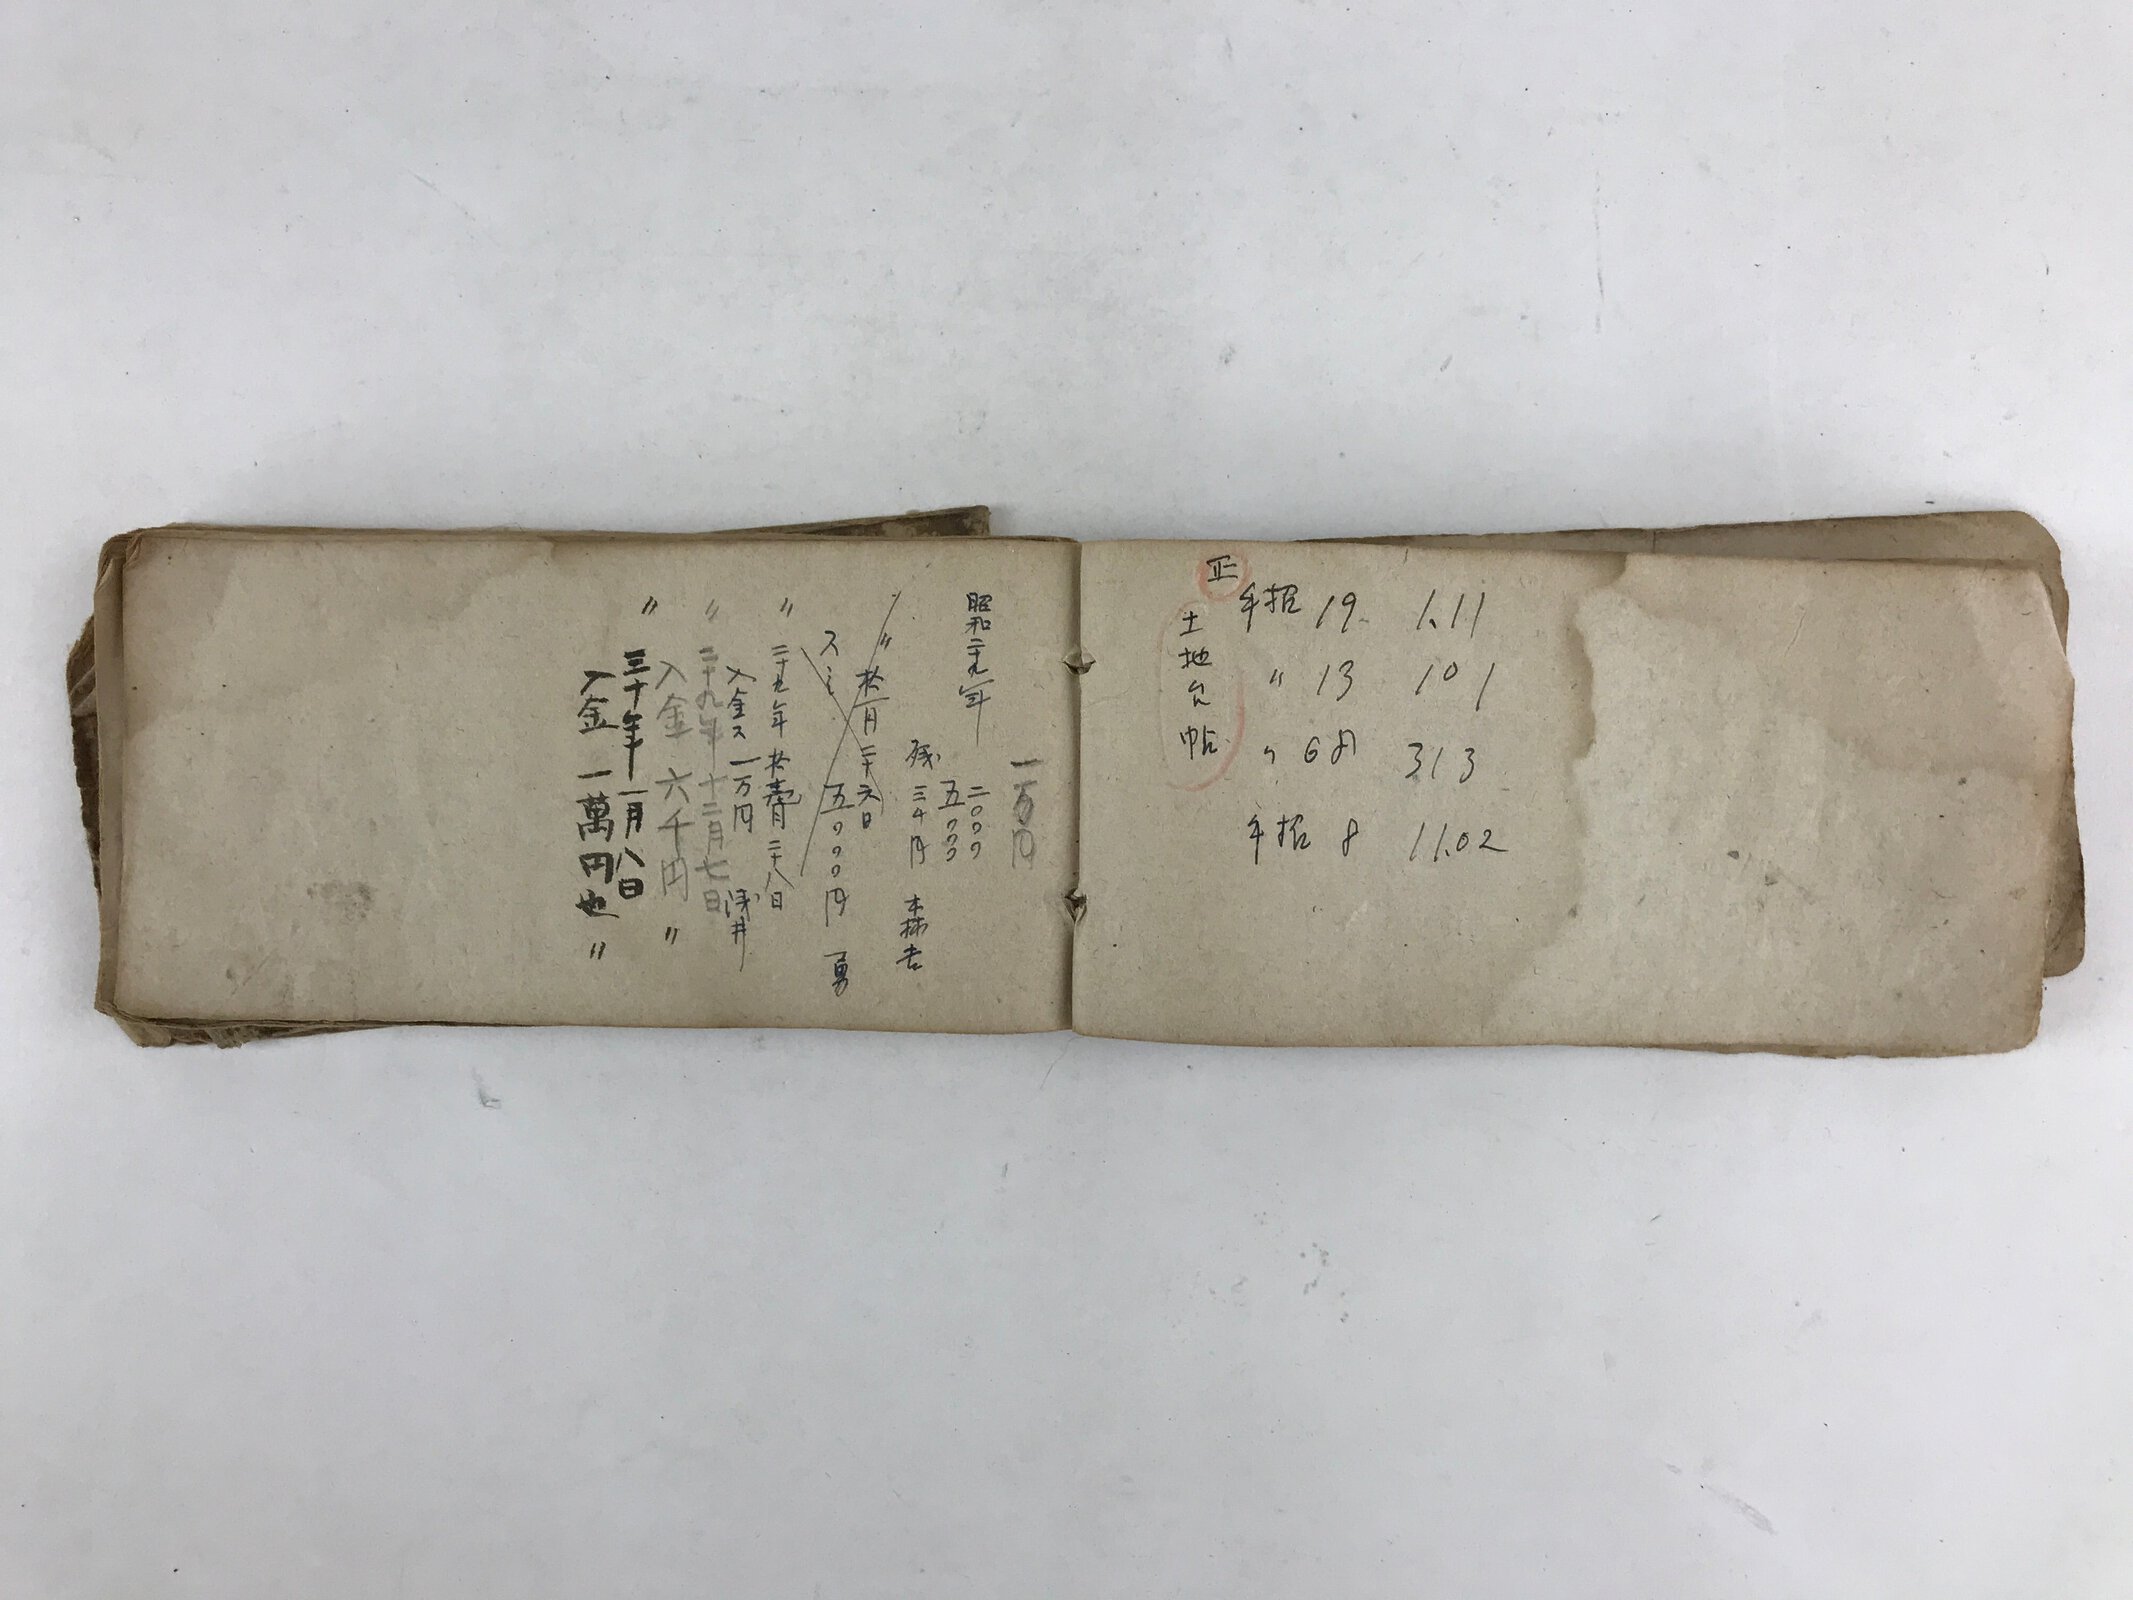 正
土地台帖
手招 19. 1.11
〃 13 101
〃 68 313
手招 8 11.02
一万円
昭和二十九年 二〇〇〇
五〇〇〇
残 三千円 森吉
〃 拾一月二十六日
スミ 五〇〇〇円 勇
〃 二十九年 拾壱月二十八日
入金ス 一万円 浅井
〃 二十九年十二月七日
入金 六千円 〃
〃 三十年一月八日
入金 一萬円也 〃